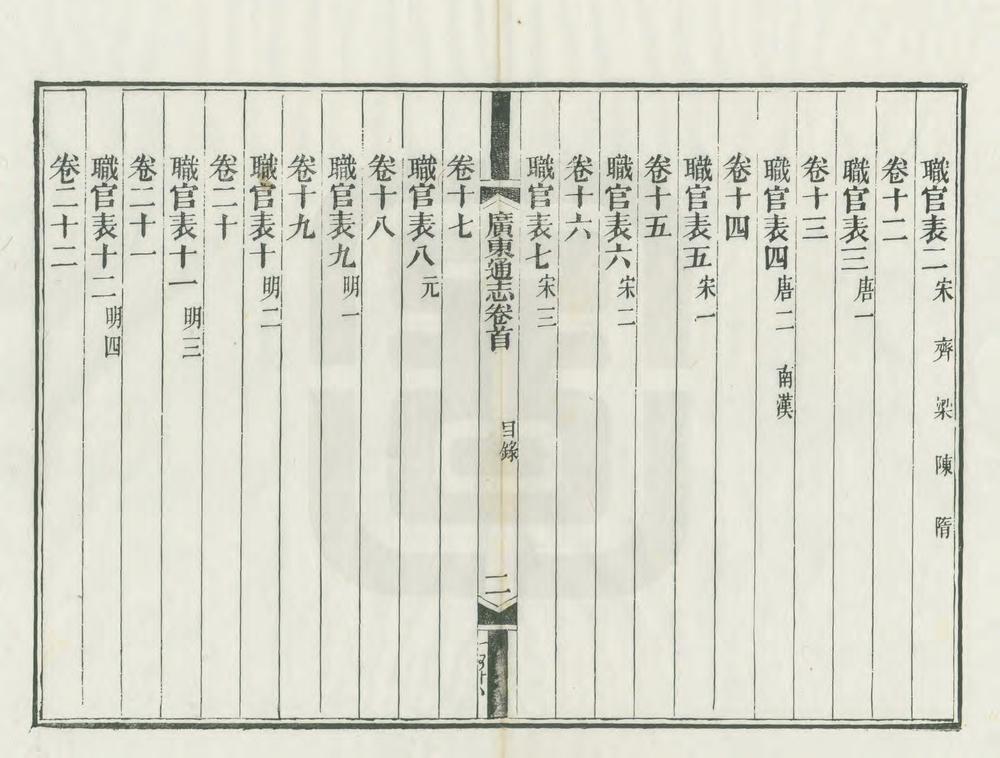 職官表二宋 齊 梁 陳 隋
卷十二
職官表三唐一
卷十三
職官表四唐二 南漢
卷十四
職官表五宋一
卷十五
職官表六宋二
卷十六
職官表七宋三
廣東通志卷首 目錄 二
卷十七
職官表八元
卷十八
職官表九明一
卷十九
職官表十明二
卷二十
職官表十一明三
卷二十一
職官表十二明四
卷二十二